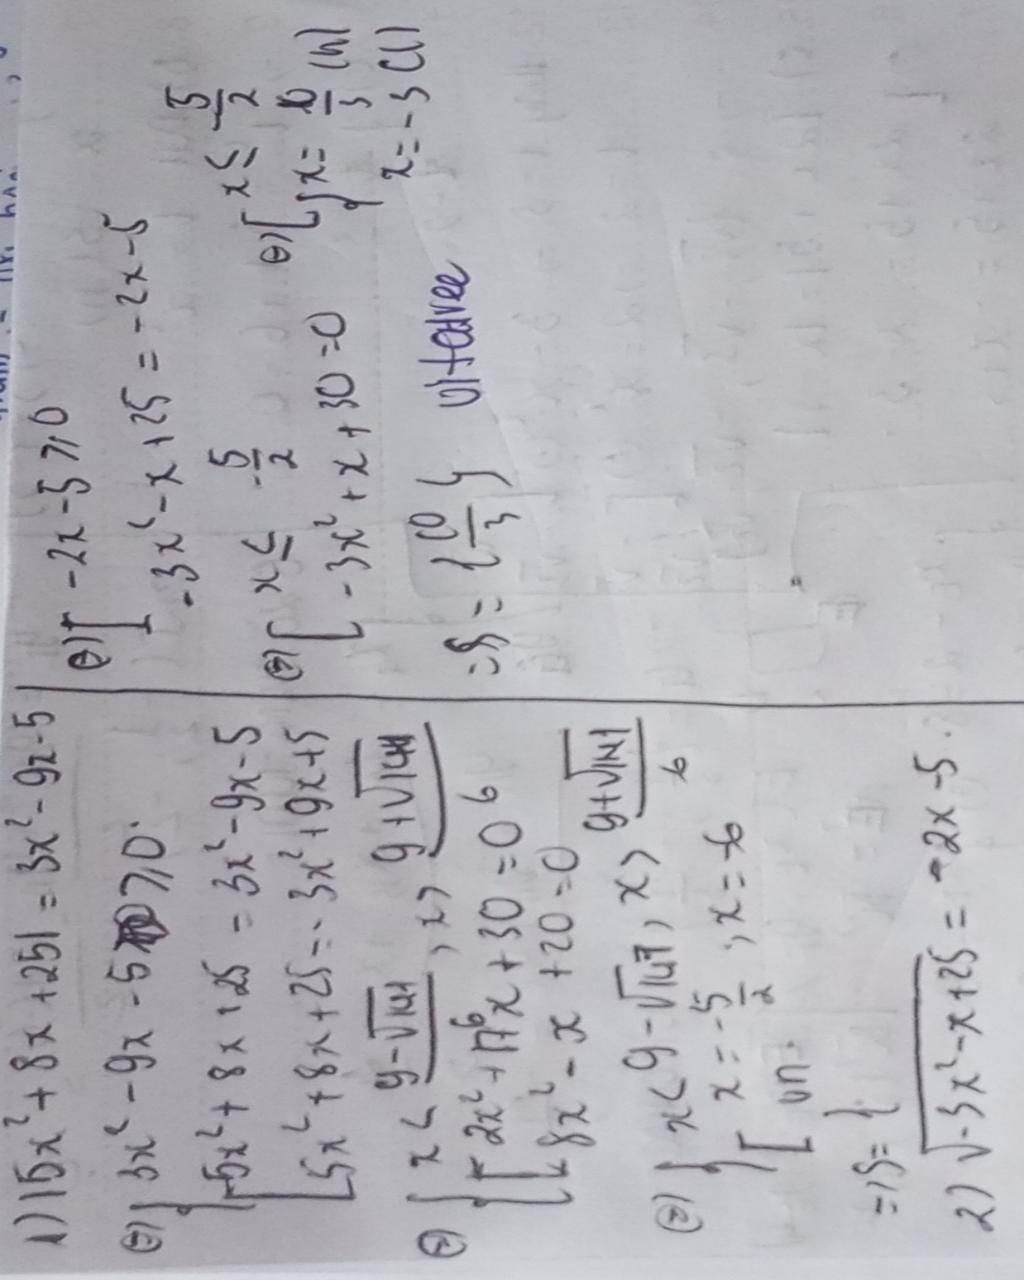 1) |5x² + 8x + 25| = 3x² - 9x - 5
⇔ { 3x² - 9x - 5 ≥ 0
[ 5x² + 8x + 25 = 3x² - 9x - 5
[ 5x² + 8x + 25 = - 3x² + 9x + 5
⇔ { x < (9 - √141)/6 , x > (9 + √141)/6
{ [ 2x² + 17x + 30 = 0
[ 8x² - x + 20 = 0
⇔ { x < 9 - √141 , x > (9 + √141)/6
{ [ x = - 5/2 , x = - 6
[ vn.
=> S = {
2) √(-3x² - x + 25) = - 2x - 5
⇔ [ - 2x - 5 ≥ 0
- 3x² - x + 25 = - 2x - 5
⇔ [ x ≤ - 5/2
- 3x² + x + 30 = 0
⇔ [ x ≤ - 5/2
{ x = 10/3 (n)
x = - 3 (l)
=> S = { 10/3 }